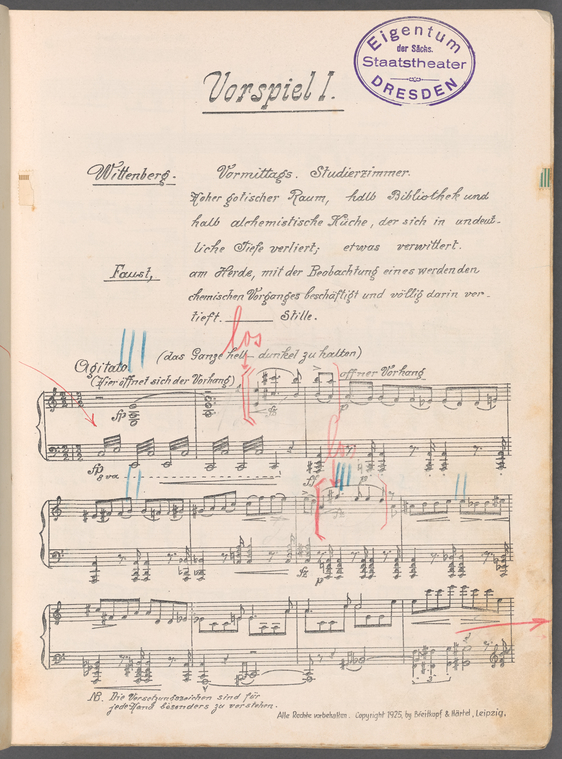 Eigentum
der Sächs.
Staatstheater
DRESDEN
Vorspiel I.
Wittenberg. Vormittags. Studierzimmer.
Hoher gotischer Raum, halb Bibliothek und
halb alchemistische Küche, der sich in undeut-
liche Tiefe verliert; etwas verwittert.
Faust, am Herde, mit der Beobachtung eines werdenden
chemischen Vorganges beschäftigt und völlig darin ver-
tieft. Stille.
los
Agitato (das Ganze helb-dunkel zu halten)
(Hier öffnet sich der Vorhang) offner Vorhang
sfp
fz
p
sfp
8va
ff
p
fz
fz
p
NB. Die Versetzungszeichen sind für
jede Hand besonders zu verstehen.
Alle Rechte vorbehalten. Copyright 1925, by Breitkopf & Härtel, Leipzig.